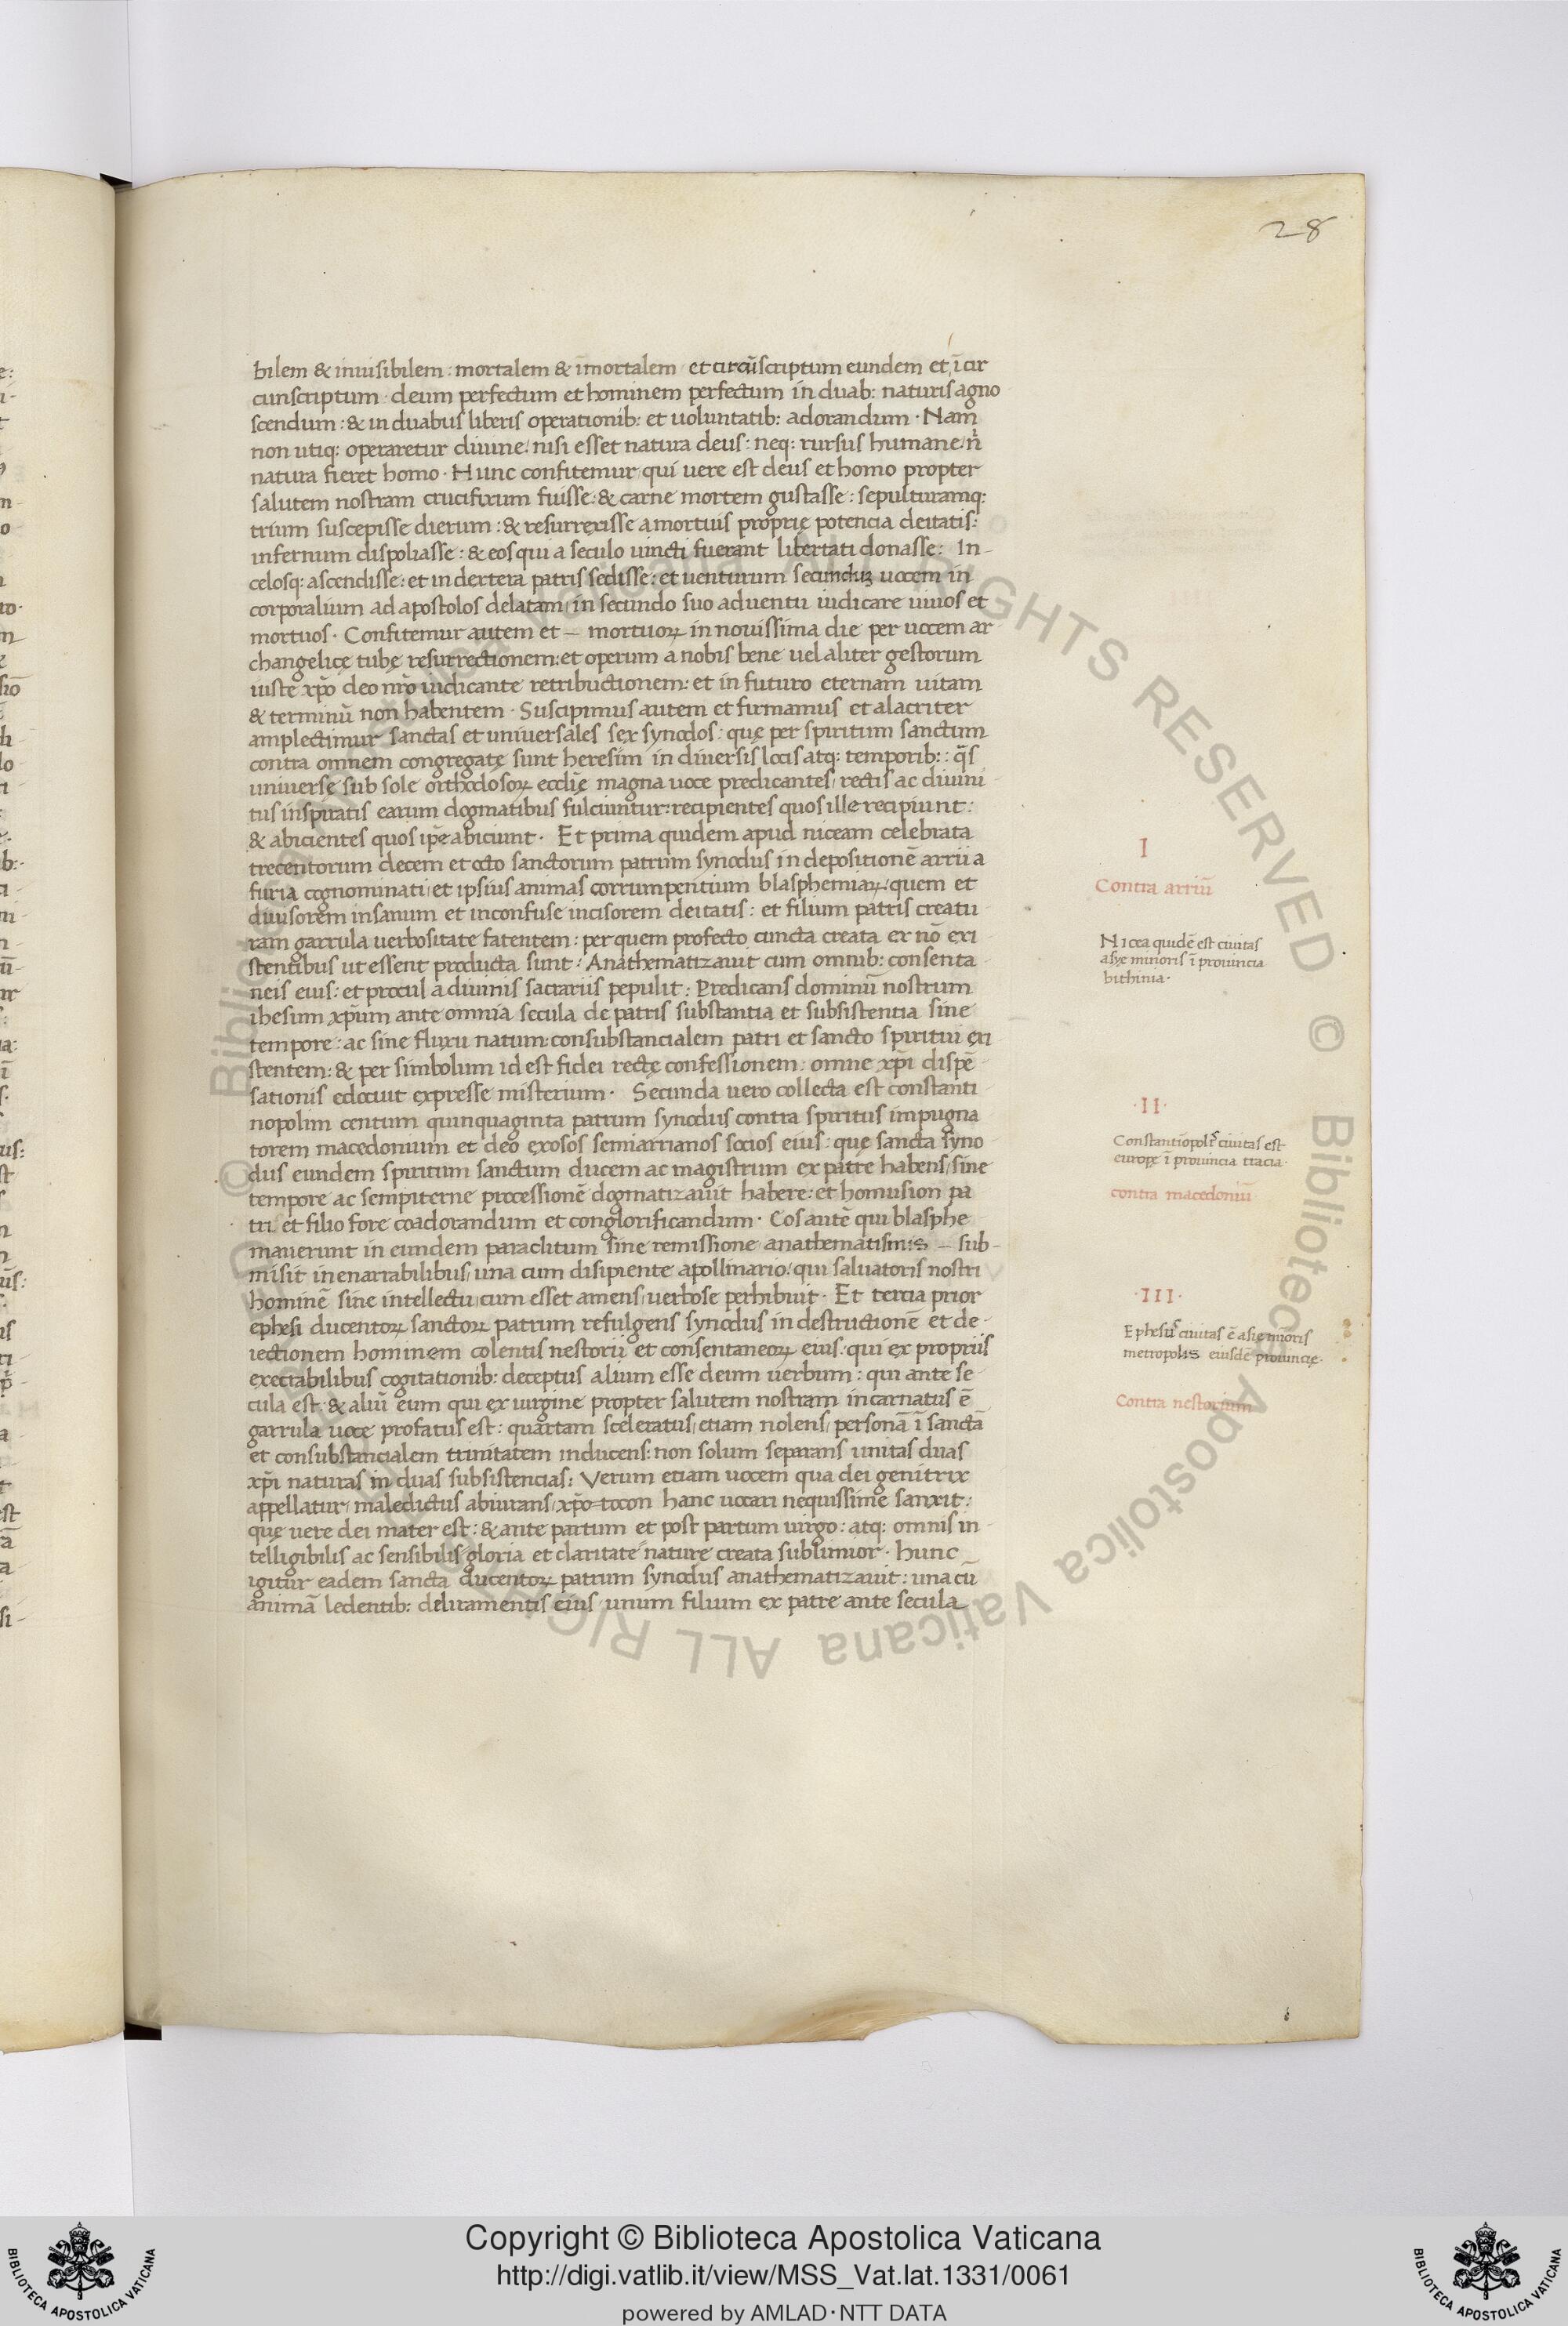 28
bilem & inuisibilem : mortalem & īmortalem · et circūscriptum eundem et ī cir
cunscriptum · deum perfectum et hominem perfectum in duab: naturis agno
scendum : & in duabus liberis operationib: et uoluntatib: adorandum · Nam
non utiq: operaretur diuine / nisi esset natura deus : neq: rursus humane / ñ
natura fieret homo · Hunc confitemur qui uere est deus et homo propter
salutem nostram crucifixum fuisse : & carne mortem gustasse : sepulturamq:
trium suscepisse dierum : & resurrexisse a mortuis proprię potencia deitatis :
infernum dispoliasse : & eos qui a seculo uincti fuerant libertati donasse : In-
celosq: ascendisse : et in dextera patris sedisse : et uenturum secunduꝫ uocem in
corporalium ad apostolos delatam / in secundo suo aduentu iudicare uiuos et
mortuos · Confitemur autem et — mortuoꝝ in nouissima die per uocem ar-
changelicę tubę resurrectionem : et operum a nobis bene uel aliter gestorum
iuste xp̄o deo nr̄o iudicante retributionem : et in futuro eternam uitam
& terminū non habentem · Suscipimus autem et firmamus et alacriter
amplectimur sanctas et uniuersales sex synodos : quę per spiritum sanctum
contra omnem congregatę sunt heresim in diuersis locis atq: temporib: : q̄s
uniuerse sub sole orthodosoꝝ eccl̄ię magna uoce predicantes / rectis ac diuini-
tus inspiratis earum dogmatibus fulciuntur : recipientes quos ille recipiunt :
& abicientes quos ip̄e abiciunt · Et prima quidem apud niceam celebrata
trecentorum decem et octo sanctorum patrum synodus in depositionē arrii a
furia cognominati / et ipsius animas corrumpentium blasphemiaꝝ / quem et
diuisorem insanum et inconfuse incisorem deitatis : et filium patris creatu-
ram garrula uerbositate fatentem : per quem profecto cuncta creata ex nō exi
stentibus ut essent producta sunt : Anathematizauit cum omnib: consenta
neis eius : et procul a diuinis sacrariis pepulit : Predicans dominū nostrum
ihesum xp̄um ante omnia secula de patris substantia et subsistentia sine
tempore : ac sine fluxu natum : consubstancialem patri et sancto spiritui exi
stentem : & per simbolum id est fidei rectę confessionem : omne xp̄i dispē-
sationis edocuit expresse misterium · Secunda uero collecta est constanti-
nopolim centum quinquaginta patrum synodus contra spiritus impugna
torem macedonium et deo exosos semiarrianos socios eius : quę sancta syno-
dus eundem spiritum sanctum ducem ac magistrum ex patre habens / sine
tempore ac sempiterne processionē dogmatizauit habere : et homusion pa
tri et filio fore coadorandum et conglorificandum · Eos autē qui blasphe
mauerunt in eundem paraclitum sine remissione anathematismis — sub-
misit inenarrabilibus / una cum disipiente apollinario / qui saluatoris nostri
hominē sine intellectu / cum esset amens / uerbose perhibuit · Et tercia prior
ephesi ducentoꝝ sanctoꝝ patrum refulgens synodus in destructionē et de-
iectionem hominem colentis nestorii et consentaneoꝝ eius : qui ex propriis
execrabilibus cogitationib: deceptus alium esse deum uerbum : qui ante se-
cula est : & aliū eum qui ex uirgine propter salutem nostram incarnatus ē
garrula uoce profatus est : quartam sceleratus / etiam nolens / personā ī sanctā
et consubstancialem trinitatem inducens : non solum separans unitas duas
xp̄i naturas in duas subsistencias : Verum etiam uocem qua dei genitrix
appellatur / maledictus abiurans / xp̄o=tocon hanc uocari nequissime sanxit :
quę uere dei mater est : & ante partum et post partum uirgo : atq: omnis in-
telligibilis ac sensibilis gloria et claritate nature creata sublimior · hunc
igitur eadem sancta ducentoꝝ patrum synodus anathematizauit : una cū
animā ledentib: deliramentis eius unum filium ex patre ante secula
I
Contra arriū
Nicea quidē est ciuitas
asyę minoris ī prouincia
bithinia·
·II·
Constantīopol' ciuitas est
europę ī prouincia tracia·
contra macedoniū
·III·
Ephesus ciuitas ē asię mīoris
metropolis eiusdē prouincię·
Contra nestorium
© Biblioteca Apostolica Vaticana ALL RIGHTS RESERVED
Copyright © Biblioteca Apostolica Vaticana
http://digi.vatlib.it/view/MSS_Vat.lat.1331/0061
powered by AMLAD·NTT DATA
BIBLIOTECA APOSTOLICA VATICANA
BIBLIOTECA APOSTOLICA VATICANA